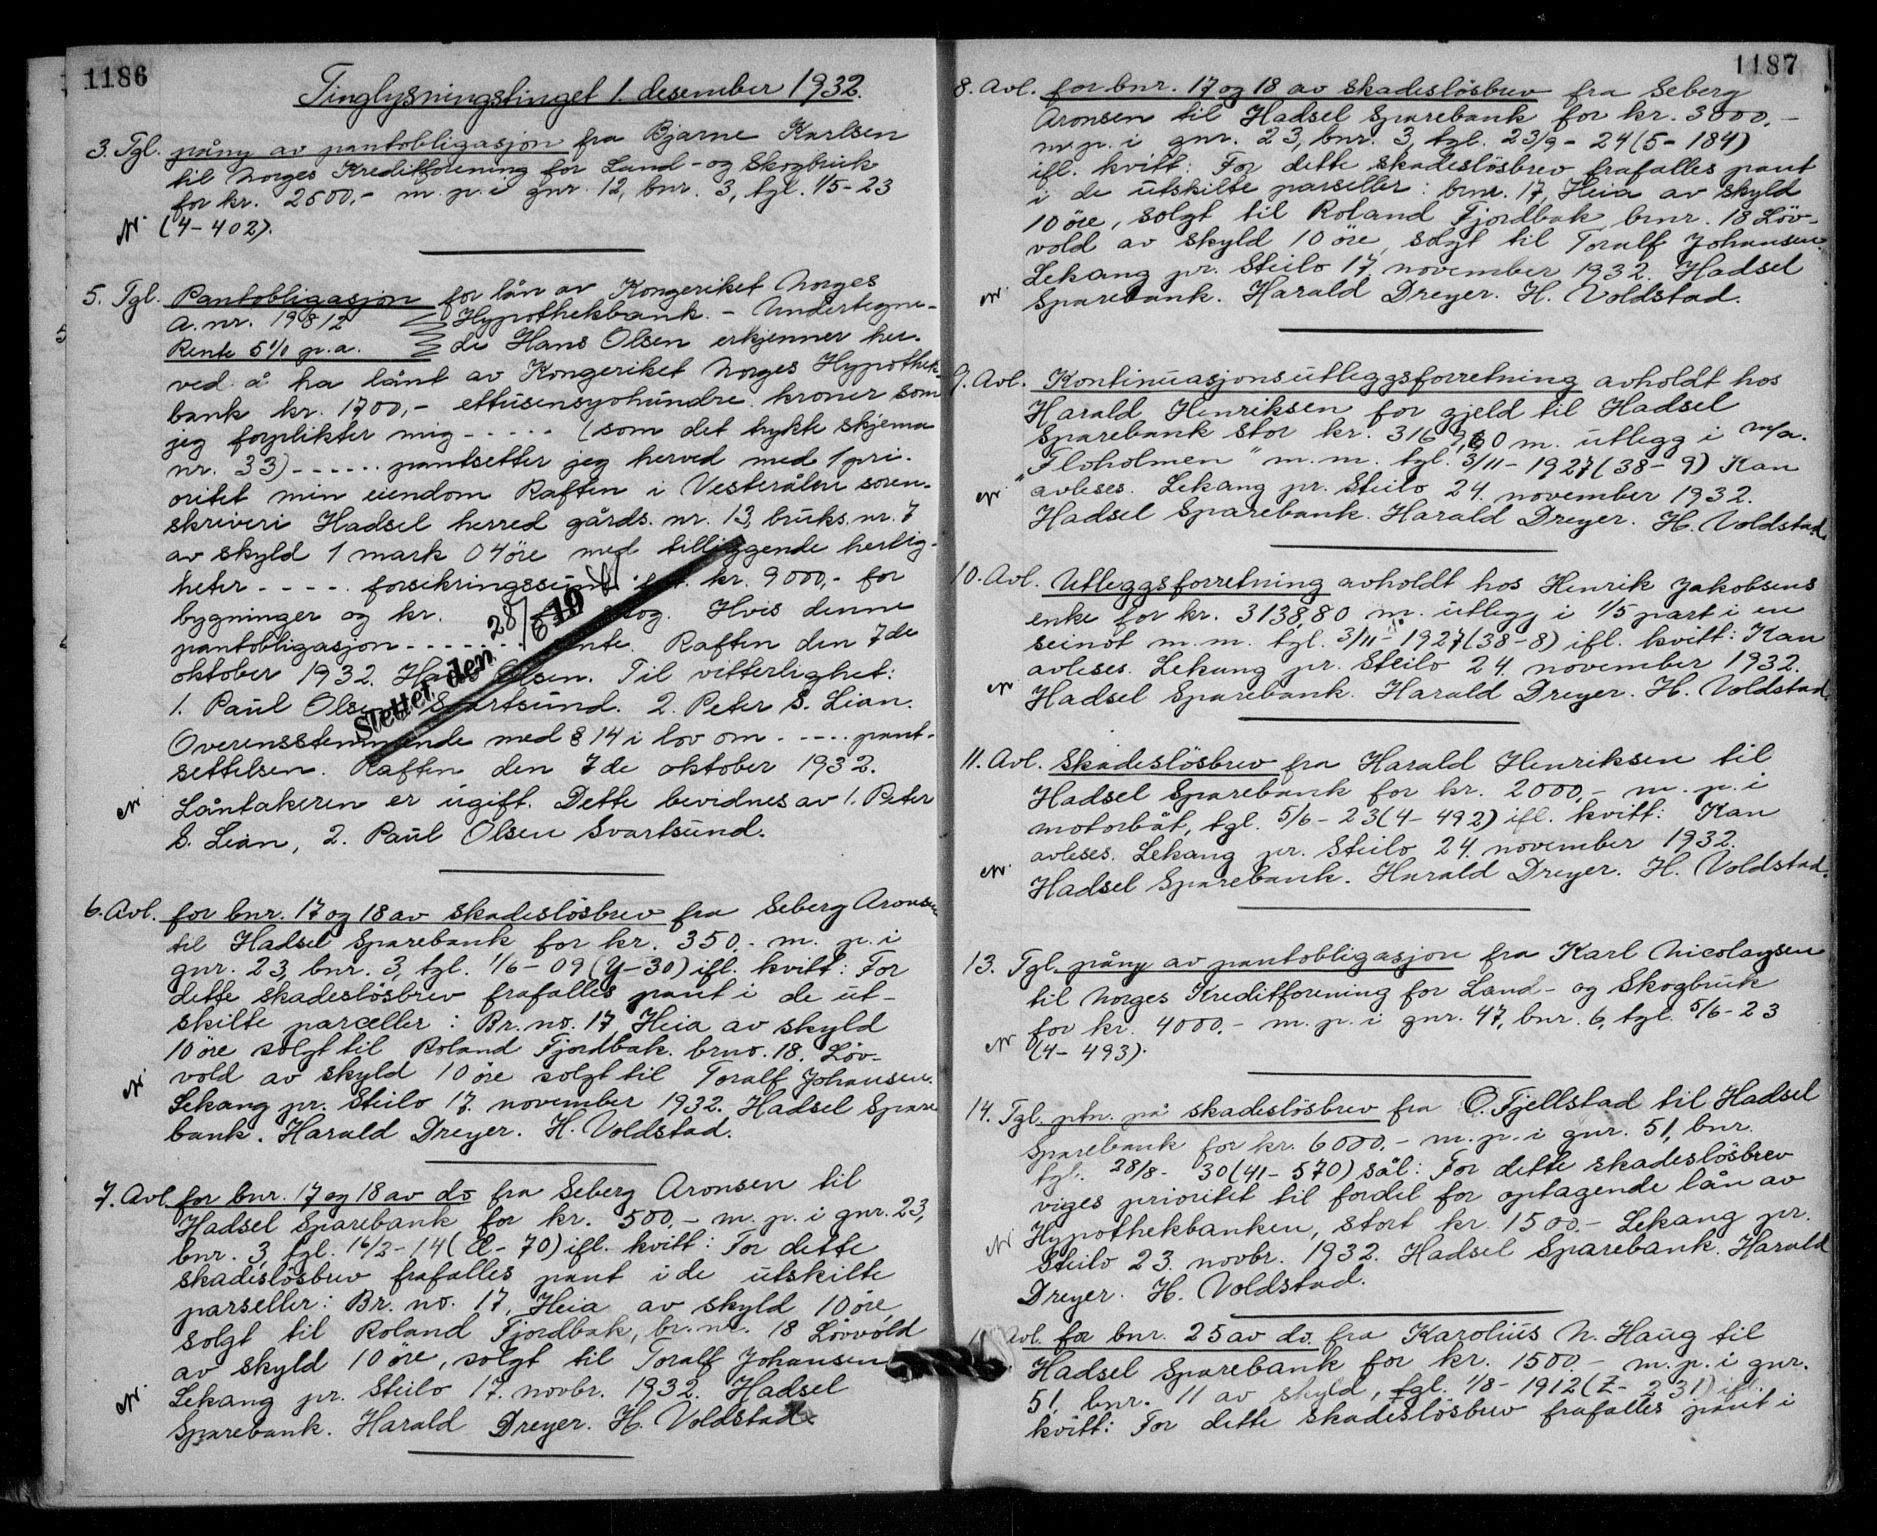 1186
Tinglysningstinget 1. desember 1932.
3. Tgl. påny av pantobligasjon fra Bjarne Karlsen
til Norges Kreditforening for Land- og Skogbruk
for kr. 2500,- m. p. i gnr. 12, bnr. 3, tgl. 1/5-23
(4-402).
5. Tgl. Pantobligasjon for lån av Kongeriket Norges
A. nr. 19812 Hypothekbank. - Undertegne-
Rente 5 % p.a. de Hans Olsen erkjenner her-
ved å ha lånt av Kongeriket Norges Hypothek-
bank kr. 1700,- ettusensyvhundre kroner som
jeg forplikter mig - - - - - (som det trykte skjema
nr. 33) - - - - - - pantsetter jeg herved med 1 pri-
oritet min eiendom Raften i Vesterålen soren-
skriveri Hadsel herred gårds. nr. 13, bruks. nr. 7
av skyld 1 mark 04 öre med tilliggende herlig-
heter - - - - - forsikringssum kr. 9000,- for
bygninger og kr. skog. Hvis denne
pantobligasjon - - - - - - Raften den 7de
oktober 1932. Hans Olsen. Til vitterlighet:
1. Paul Olsen Svartsund. 2. Peter S. Lian.
Overensstemmende med § 14 i lov om - - - - - pant-
settelsen. Raften den 7de oktober 1932.
Låntakeren er ugift. Dette bevidnes av 1. Peter
S. Lian, 2. Paul Olsen Svartsund.
Slettet den 28/6 19
6. Avl. for bnr. 17 og 18 av skadeslösbrev fra Seberg Aronsen
til Hadsel Sparebank for kr. 350,- m. p. i
gnr. 23, bnr. 3, tgl. 1/6-09 (Y-30) ifl. kvitt: For
dette skadeslösbrev frafalles pant i de ut-
skilte parceller: Br. no. 17, Heia av skyld
10 öre solgt til Roland Fjordbak. brno. 18. Löv-
vold av skyld 10 öre solgt til Toralf Johansen.
Lekang pr. Steilo 17. november 1932. Hadsel Spare
bank. Harald Dreyer. H. Voldstad.
7. Avl. for bnr. 17 og 18 av do fra Seberg Aronsen til
Hadsel Sparebank for kr. 500,- m. p. i gnr. 23,
bnr. 3, tgl. 16/2-14 (Æ-70) ifl. kvitt: For dette
skadeslösbrev frafalles pant i de utskilte
parseller: Br. no. 17, Heia av skyld 10 öre,
solgt til Roland Fjordbak, br. nr. 18 Lövvold
av skyld 10 öre, solgt til Toralf Johansen
Lekang pr. Steilo 17. novbr. 1932. Hadsel
Sparebank. Harald Dreyer. H. Voldstad.
1187
8. Avl. for bnr. 17 og 18 av skadeslösbrev fra Seberg
Aronsen til Hadsel Sparebank for kr. 3000,-
m. p. i gnr. 23, bnr. 3, tgl. 23/9-24 (5-184)
ifl. kvitt: For dette skadeslösbrev frafalles pant
i de utskilte parseller: bnr. 17, Heia av skyld
10 öre, solgt til Roland Fjordbak, bnr. 18 Löv-
vold av skyld 10 öre, solgt til Toralf Johansen.
Lekang pr. Steilo 17. november 1932. Hadsel
Sparebank. Harald Dreyer. H. Voldstad.
9. Avl. Kontinuasjonsutleggsforretning avholdt hos
Harald Henriksen for gjeld til Hadsel
Sparebank stor kr. 3169,60 m. utlegg i m/a.
"Floholmen" m. m. tgl. 3/11-1927 (38-9) Kan
avleses. Lekang pr. Steilo 24. november 1932.
Hadsel Sparebank. Harald Dreyer. H. Voldstad.
10. Avl. Utleggsforretning avholdt hos Henrik Jakobsens
enke for kr. 3138,80 m. utlegg i 1/5 part i en
seinot m. m. tgl. 3/11-1927 (38-8) ifl. kvitt: Kan
avleses. Lekang pr. Steilo 24. november 1932.
Hadsel Sparebank. Harald Dreyer. H. Voldstad.
11. Avl. Skadeslösbrev fra Harald Henriksen til
Hadsel Sparebank for kr. 2000,- m. p. i
motorbåt, tgl. 5/6-23 (4-492) ifl. kvitt: Kan
avleses. Lekang pr. Steilo 24. november 1932.
Hadsel Sparebank. Harald Dreyer. H. Voldstad.
13. Tgl. påny av pantobligasjon fra Karl Nicolaysen
til Norges Kreditforening for Land- og Skogbruk
for kr. 4000,- m. p. i gnr. 47, bnr. 6, tgl. 5/6-23
(4-493).
14. Tgl. ptn. på skadeslösbrev fra O. Fjellstad til Hadsel
Sparebank for kr. 6000,- m. p. i gnr. 51, bnr.
tgl. 28/8-30 (41-570) sål: For dette skadeslösbrev
viges prioritet til fordel for optagende lån av
Hypothekbanken, stort kr. 1500,- Lekang pr.
Steilo 23. novbr. 1932. Hadsel Sparebank. Harald
Dreyer. H. Voldstad.
Avl. for bnr. 25 av do. fra Karolius N. Haug til
Hadsel Sparebank for kr. 1500,- m. p. i gnr.
51, bnr. 11 av skyld, tgl. 1/8-1912 (Z-231) ifl.
kvitt: For dette skadeslösbrev frafalles pant i